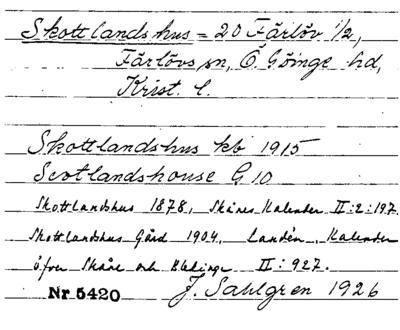 Skottlandshus = 20 Färlöv 1/2,
Färlövs sn, Ö. Göinge hd,
Krist. l.
Skottlandshus kb 1915
Scotlandshouse G 10
Skottlandshus 1878, Skånes Kalender II:2:197.
Skottlandshus Gård 1904, Landén, Kalender
öfver Skåne och Blekinge II:927.
Nr 5420 J. Sahlgren 1926